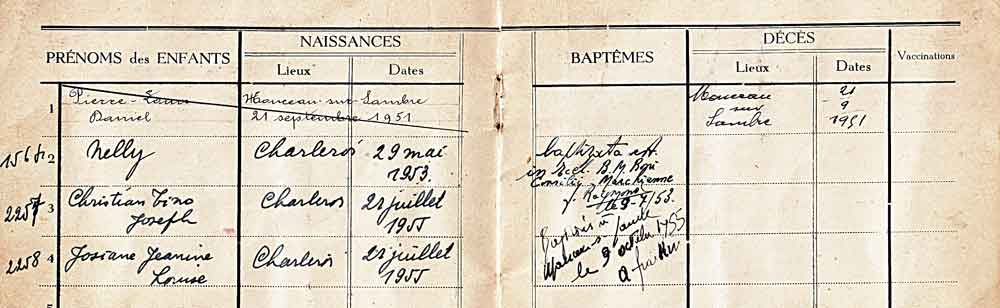 PRÉNOMS des ENFANTS
NAISSANCES
Lieux
Dates
BAPTÊMES
DÉCÈS
Lieux
Dates
Vaccinations
1
Pierre-Louis
Daniel
Monceau-sur-Sambre
21 septembre 1951
Monceau
sur
Sambre
21
9
1951
2
Nelly
Charleroi
29 mai
1953.
baptizata est
in Eccl. B. M.
Marchienne
9-7/53.
2257
3
Christian Tino
Joseph
Charleroi
21 juillet
1955
Baptisés à
Monceau s/ Sambre
le 9 octobre 1955
2258
4
Josiane Jeanine
Louise
Charleroi
21 juillet
1955
5